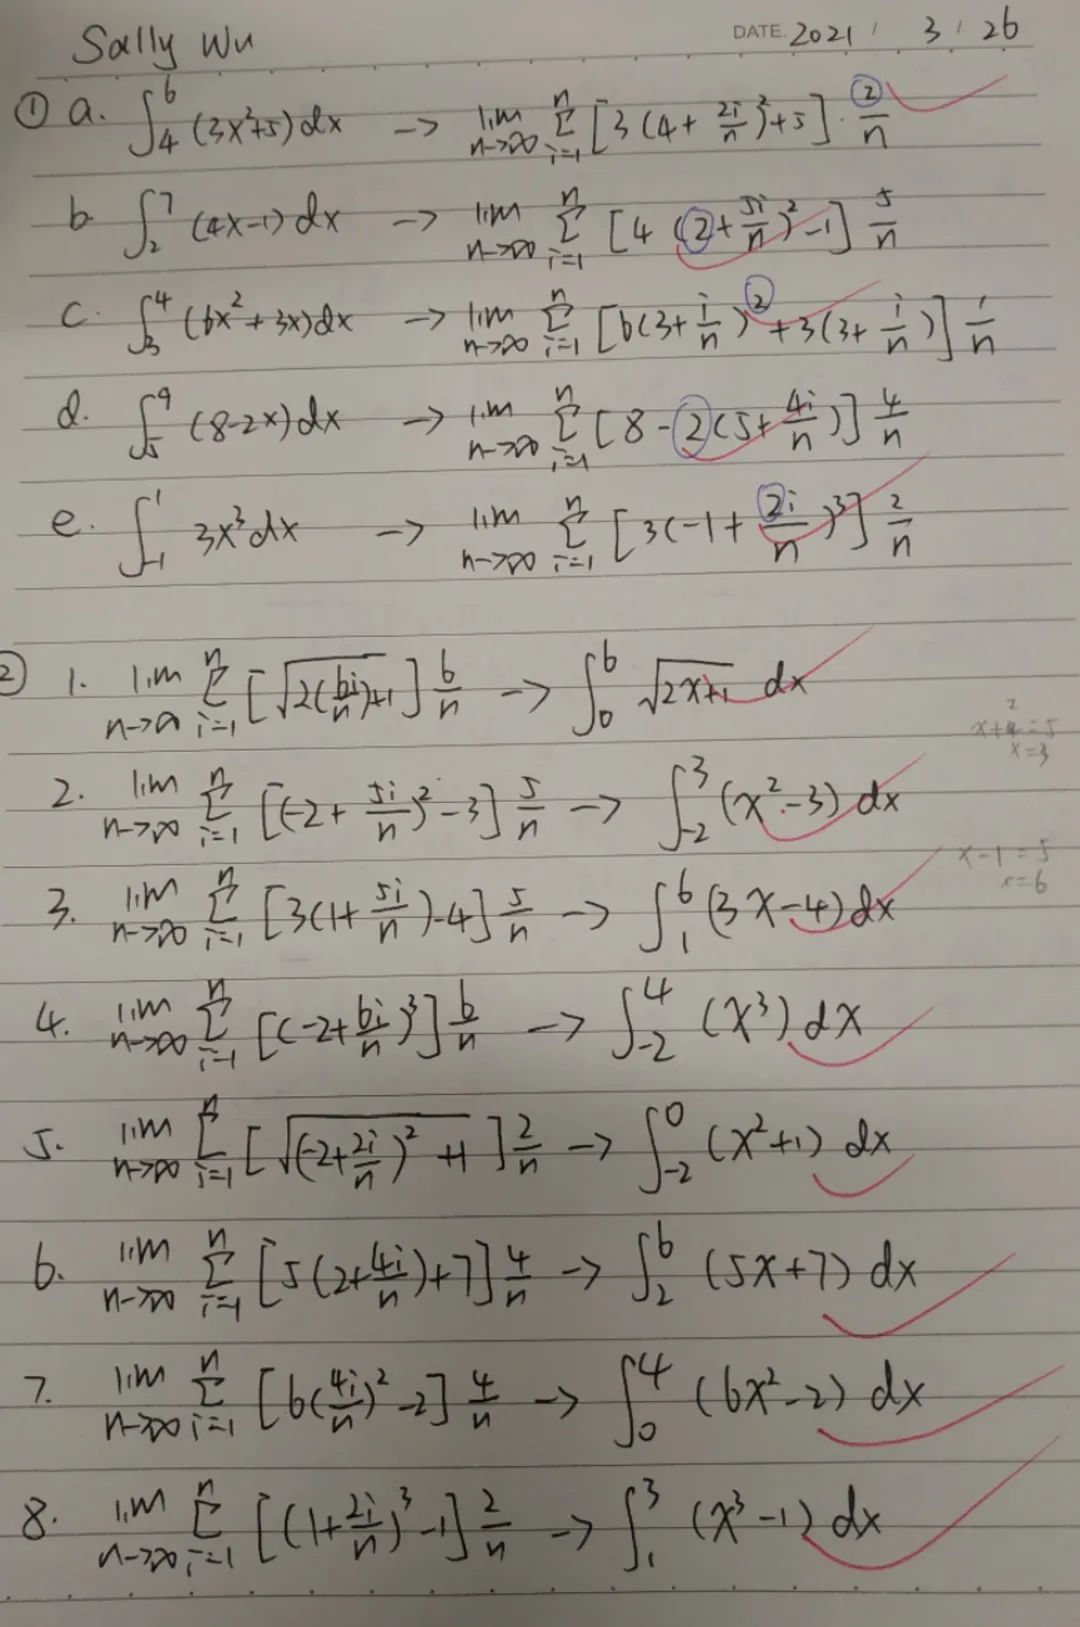 Sally Wu DATE. 2021 / 3 / 26
① a. ∫₄⁶ (3x²+5) dx → lim n→∞ Σ i=1 n [3(4+ 2i/n)²+5] · 2/n
b ∫₂⁷ (4x-1) dx → lim n→∞ Σ i=1 n [4 (2+ 5i/n)² -1] 5/n
c. ∫₃⁴ (6x²+3x) dx → lim n→∞ Σ i=1 n [6(3+ i/n)² +3(3+ i/n)] 1/n
d. ∫₅⁹ (8-2x) dx → lim n→∞ Σ i=1 n [8-2(5+ 4i/n)] 4/n
e. ∫₋₁¹ 3x³dx → lim n→∞ Σ i=1 n [3(-1+ 2i/n)³] 2/n
② 1. lim n→∞ Σ i=1 n [√(2(6i/n)+1)] 6/n → ∫₀⁶ √(2x+1) dx
x+2=5
x=3
2. lim n→∞ Σ i=1 n [(-2+ 5i/n)² -3] 5/n → ∫₋₂³ (x²-3) dx
x-1=5
x=6
3. lim n→∞ Σ i=1 n [3(1+ 5i/n)-4] 5/n → ∫₁⁶ (3x-4) dx
4. lim n→∞ Σ i=1 n [(-2+ 6i/n)³] 6/n → ∫₋₂⁴ (x³) dx
5. lim n→∞ Σ i=1 n [√((-2+ 2i/n)² +1)] 2/n → ∫₋₂⁰ (x²+1) dx
6. lim n→∞ Σ i=1 n [5(2+ 4i/n)+7] 4/n → ∫₂⁶ (5x+7) dx
7. lim n→∞ Σ i=1 n [6(4i/n)² -2] 4/n → ∫₀⁴ (6x²-2) dx
8. lim n→∞ Σ i=1 n [(1+ 2i/n)³ -1] 2/n → ∫₁³ (x³-1) dx